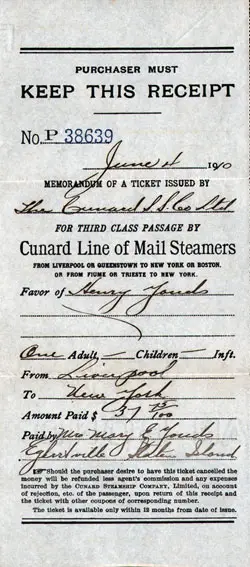 PURCHASER MUST
KEEP THIS RECEIPT
No. P 38639
June 4 1910
MEMORANDUM OF A TICKET ISSUED BY
The Cunard S.S. Co Ltd
FOR THIRD CLASS PASSAGE BY
Cunard Line of Mail Steamers
FROM LIVERPOOL OR QUEENSTOWN TO NEW YORK OR BOSTON.
OR FROM FIUME OR TRIESTE TO NEW YORK.
Favor of Henry Youds
One Adult, — Children — Inft.
From Liverpool
To New York
Amount Paid $ 37
Paid by Mrs Mary E Youds
Staten Island
Should the purchaser desire to have this ticket cancelled the
money will be refunded less agent's commission and any expenses
incurred by the CUNARD STEAMSHIP COMPANY, Limited, on account
of rejection, etc. of the passenger, upon return of this receipt and
the ticket with other coupons of corresponding number.
The ticket is available only within 12 months from date of issue.